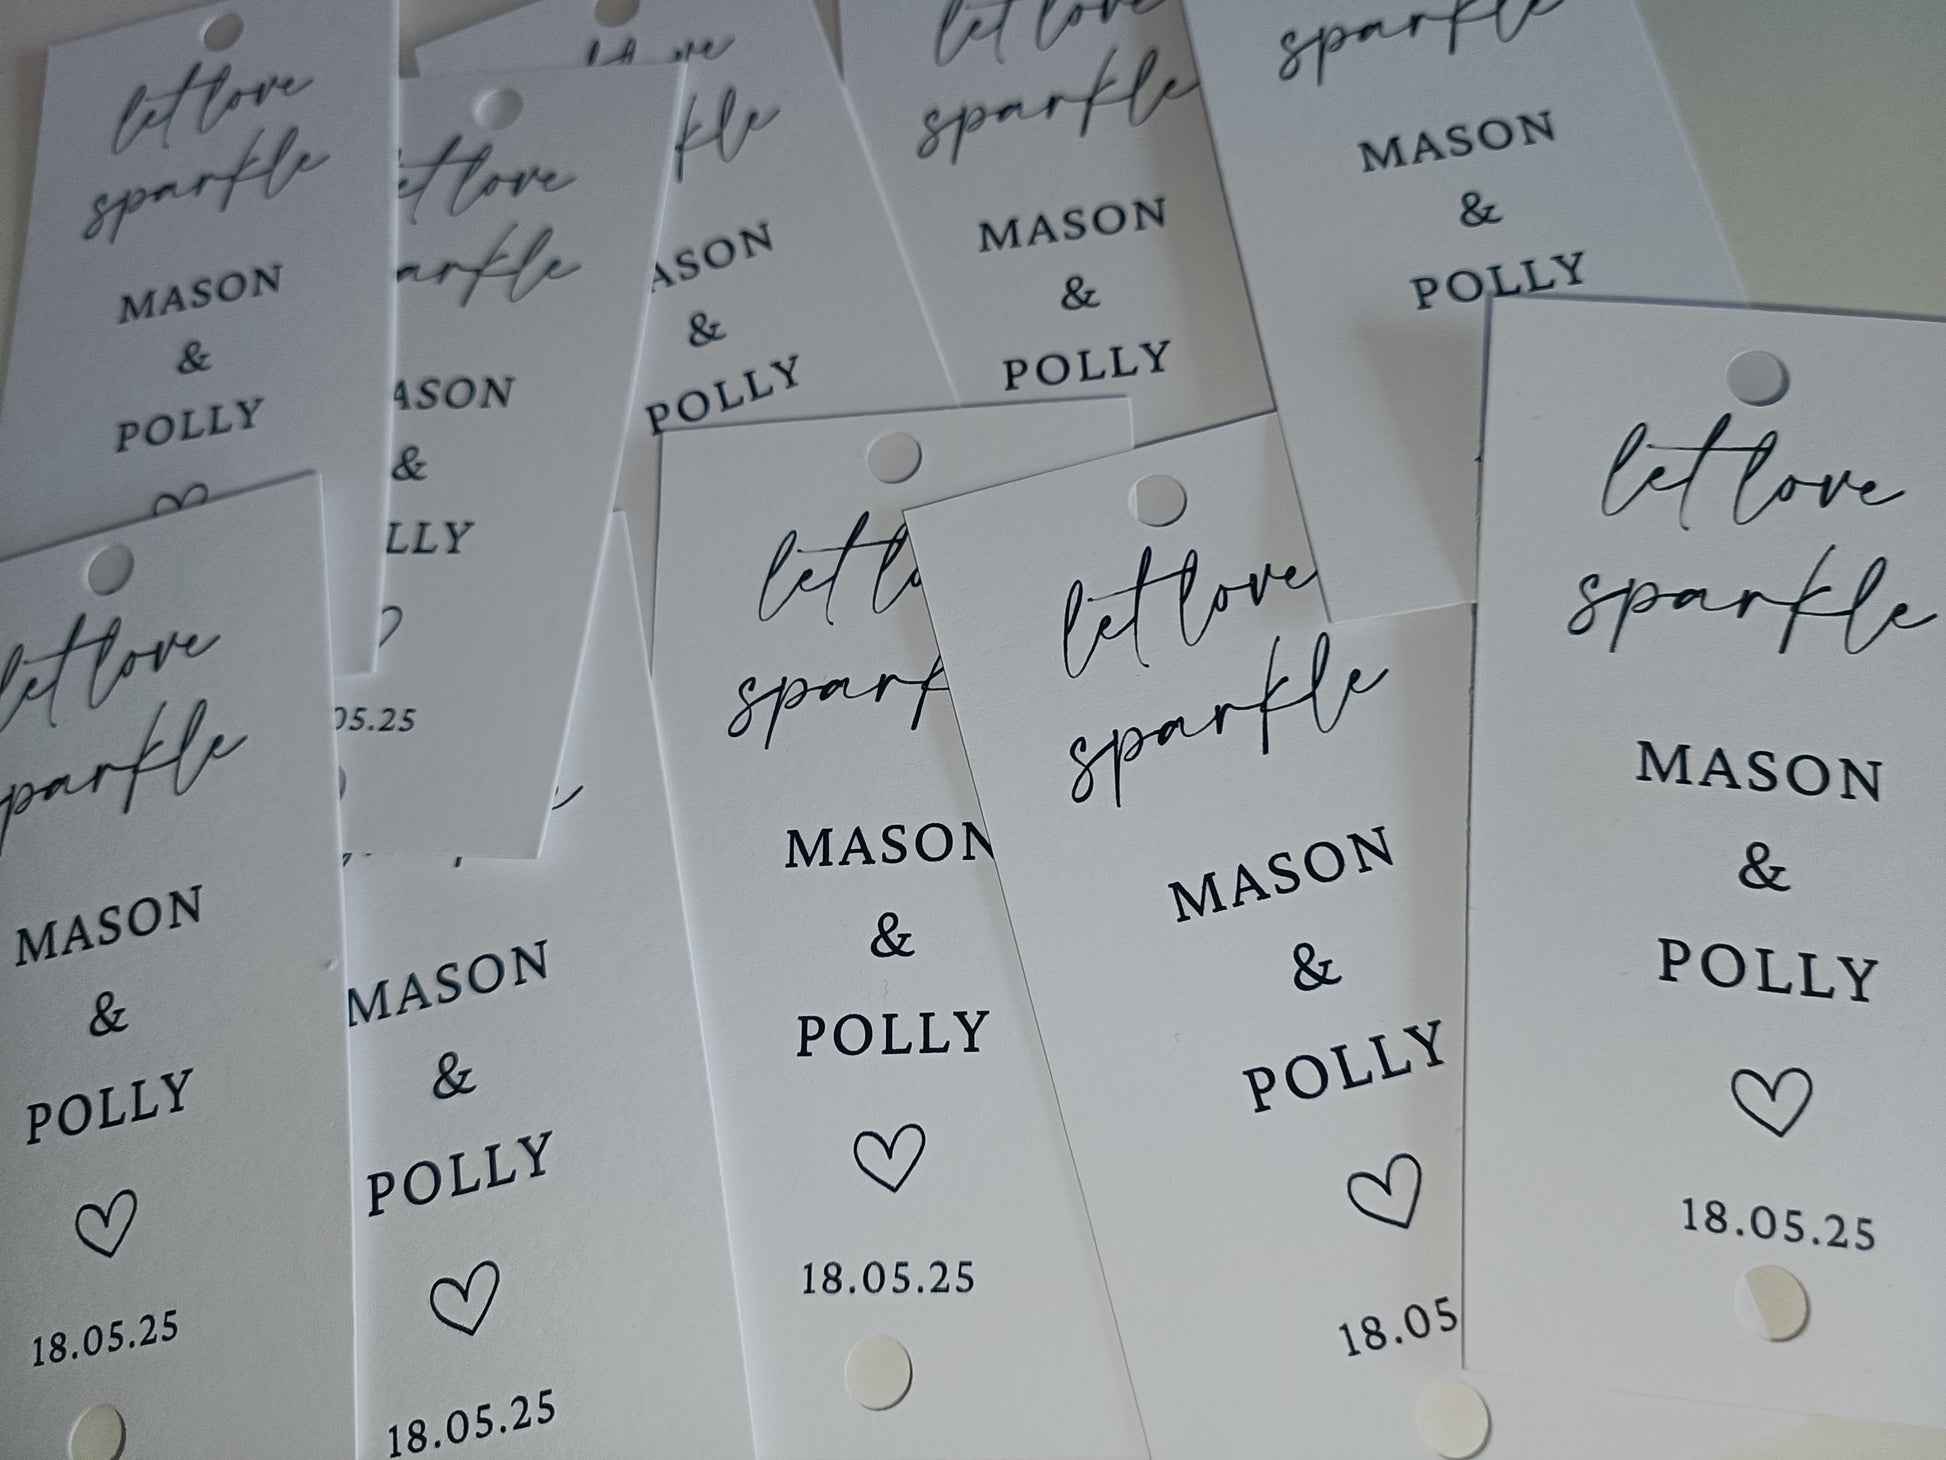 let love
sparkle
MASON
&
POLLY
let love
arkle
ASON
&
LLY
05.25
kle
ASON
&
POLLY
let love
sparkle
MASON
&
POLLY
sparkle
MASON
&
POLLY
let love
parkle
MASON
&
POLLY
18.05.25
MASON
&
POLLY
18.05.25
let lo
spark
MASON
&
POLLY
18.05.25
let love
sparkle
MASON
&
POLLY
18.05
let love
sparkle
MASON
&
POLLY
18.05.25